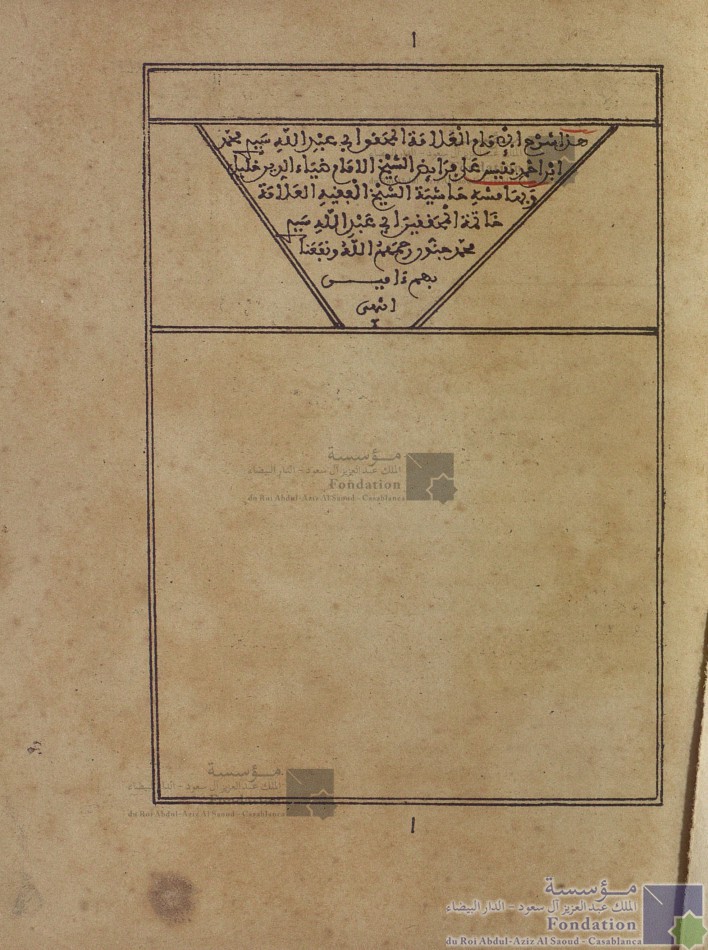 ا
هذا شرح الإمام العلامة المحقق أبي عبد الله سيدي محمد
ابن احمد بنيس على فرائض الشيخ الامام ضياء الدين خليل
وبهامشه حاشية الشيخ الفقيه العلامة
خاتمة المحققين أبي عبد الله سيدي
محمد جنون رحمهم الله ونفعنا
بهم ءاميـــن
انتهى
مؤسسة
الملك عبد العزيز آل سعود - الدار البيضاء
Fondation
du Roi Abdul-Aziz Al Saoud - Casablanca
مؤسسة
الملك عبد العزيز آل سعود - الدار البيضاء
Fondation
du Roi Abdul-Aziz Al Saoud - Casablanca
ا
مؤسسة
الملك عبد العزيز آل سعود - الدار البيضاء
Fondation
du Roi Abdul-Aziz Al Saoud - Casablanca